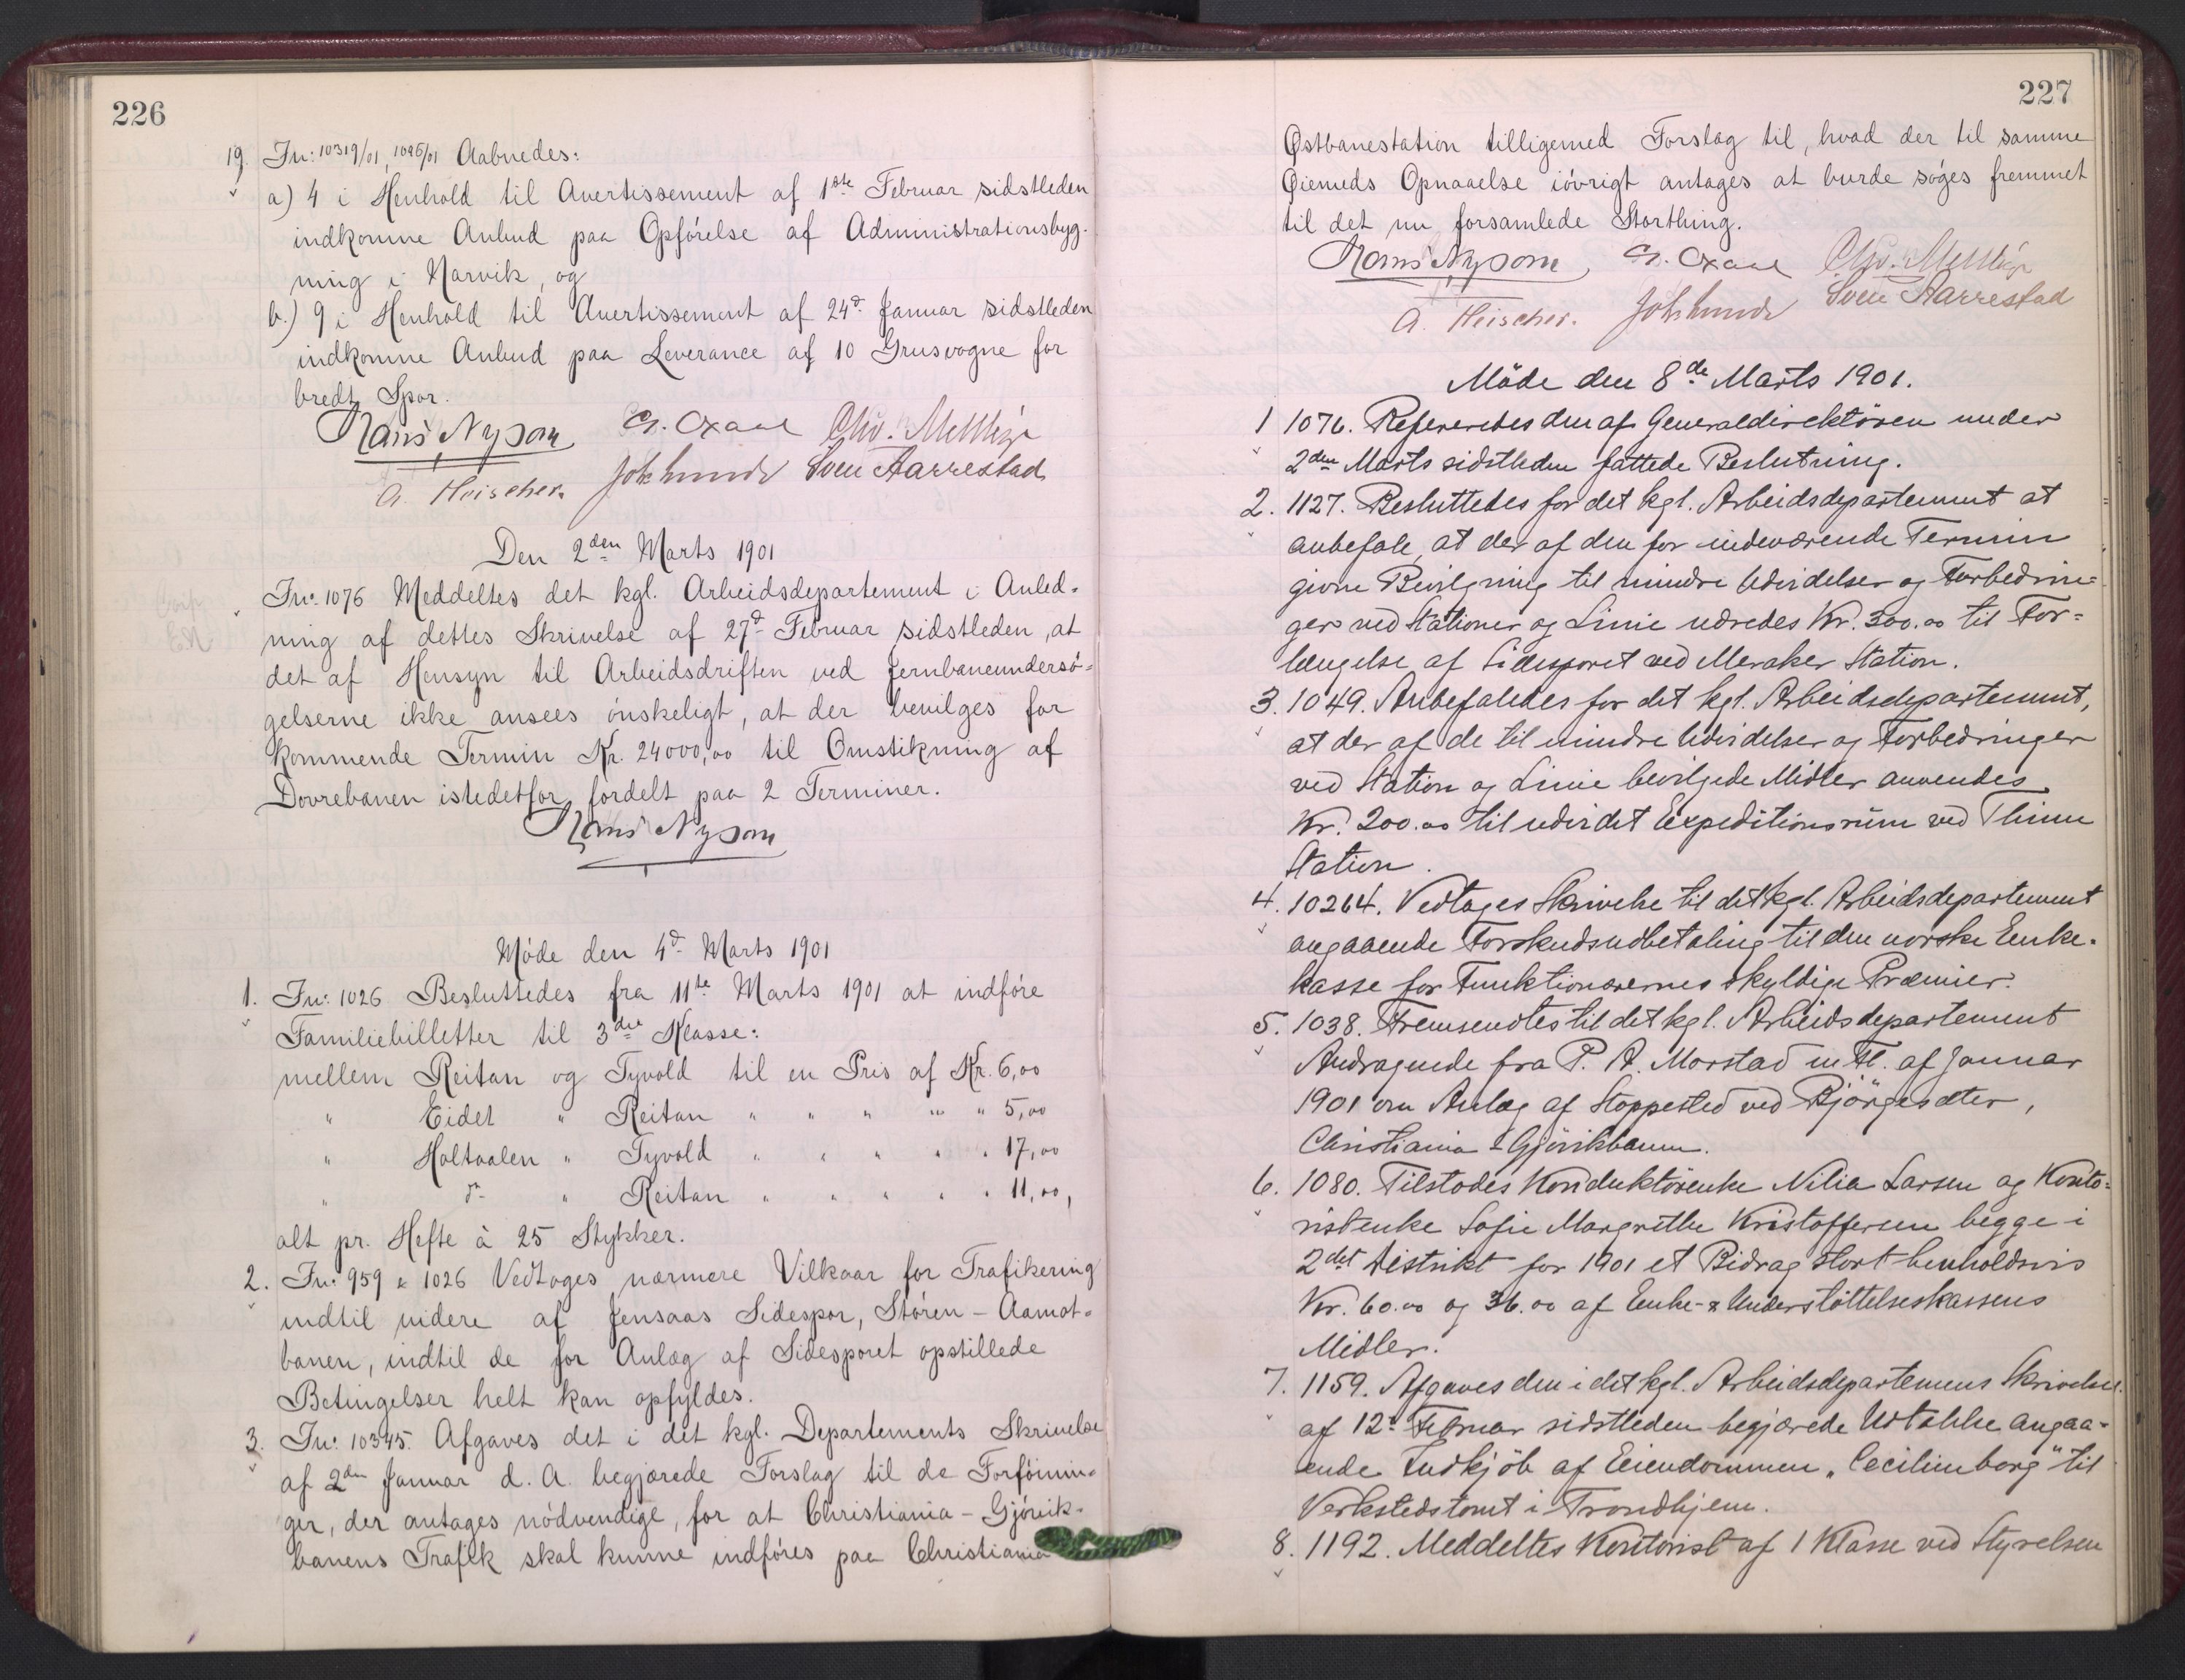 226
19. Jn: 10319/01, 1096/01 Aabnedes:
a) 4 i Henhold til Avertissement af 1ste Februar sidstleden
indkomne Anbud paa Opførelse af Administrationsbyg-
ning i Narvik, og
b.) 9 i Henhold til Avertissement af 24d. Januar sidstleden
indkomne Anbud paa Leverance af 10 Grusvogne for
bredt Spor.
Hans Nysom
A. Fleischer. Sven Aarrestad
Den 2den Marts 1901
Jn: 1076 Meddeltes det kgl. Arbeidsdepartement i Anled-
ning af dettes Skrivelse af 27d. Februar sidstleden, at
det af Hensyn til Arbeidsdriften ved Jernbaneundersø-
gelserne ikke ansees ønskeligt, at der bevilges for
kommende Termin Kr. 24000,00 til Omstikning af
Dovrebanen istedetfor fordelt paa 2 Terminer.
Hans Nysom
Møde den 4d. Marts 1901
1. Jn: 1026 Besluttedes fra 11te Marts 1901 at indføre
Familiebilletter til 3die Klasse:
mellem Reitan og Tyvold til en Pris af Kr. 6,00
" Eidet " Reitan " " " " " 5,00
" Holtaalen " Tyvold " " " " " 17,00
" do " Reitan " " " " " 11,00,
alt pr. Hefte à 25 Stykker.
2. Jn: 959 & 1026 Vedtoges nærmere Vilkaar for Trafikering
indtil videre af Jensaas Sidespor, Støren - Aamot-
banen, indtil de for Anlæg af Sidesporet opstillede
Betingelser helt kan opfyldes.
3. Jn: 10345. Afgaves det i det kgl. Departements Skrivelse
af 2den Januar d. A. begjærede Forslag til de Forføinin-
ger, der antages nødvendige, for at Christiania - Gjøvik-
banens Trafik skal kunne indføres paa Christiania
227
Østbanestation tilligemed Forslag til, hvad der til samme
Øiemeds Opnaaelse iøvrigt antages at burde søges fremmet
til det nu forsamlede Storthing.
Hans Nysom
A. Fleischer. Sven Aarrestad
Møde den 8de Marts 1901.
1 1076. Refereredes den af Generaldirektøren under
2den Marts sidstleden fattede Beslutning.
2. 1127. Besluttedes for det kgl. Arbeidsdepartement at
anbefale, at der af den for indeværende Termin
givne Bevilgning til mindre Udvidelser og Forbedrin=
ger ved Stationer og Linie udredes Kr. 300.00 til For=
længelse af Sidesporet ved Meraker Station.
3. 1049. Anbefaledes for det kgl. Arbeidsdepartement,
at der af de til mindre Udvidelser og Forbedringer
ved Station og Linie bevilgede Midler anvendes
Kr. 200.00 til udvidet Expeditionsrum ved Thinn
Station.
4. 10264. Vedtoges Skrivelse til det kgl. Arbeidsdepartement
angaaende Forskudsudbetaling til den norske Enke-
kasse for Funktionærernes skyldige Præmier.
5. 1038. Fremsendtes til det kgl. Arbeidsdepartement
Andragende fra P. A. Morstad m. fl. af Januar
1901 om Anlæg af Stoppested ved Bjørgesæter,
Christiania - Gjøvikbanen.
6. 1080. Tilstodes Konduktørenke Nilia Larsen og Konto=
ristenke Sofie Margrethe Kristoffersen begge i
2det Distrikt for 1901 et Bidrag stort henholdsvis
Kr. 60.00 og 36.00 af Enke- & Understøttelseskassens
Midler.
7. 1159. Afgaves den i det kgl. Arbeidsdepartemens Skrivelse
af 12te Februar sidstleden begjærede Udtalelse angaa-
ende Indkjøb af Eiendommen „Cecilienborg" til
Verkstedstomt i Trondhjem.
8. 1192. Meddeltes Kontorist af 1 Klasse ved Styrelsen